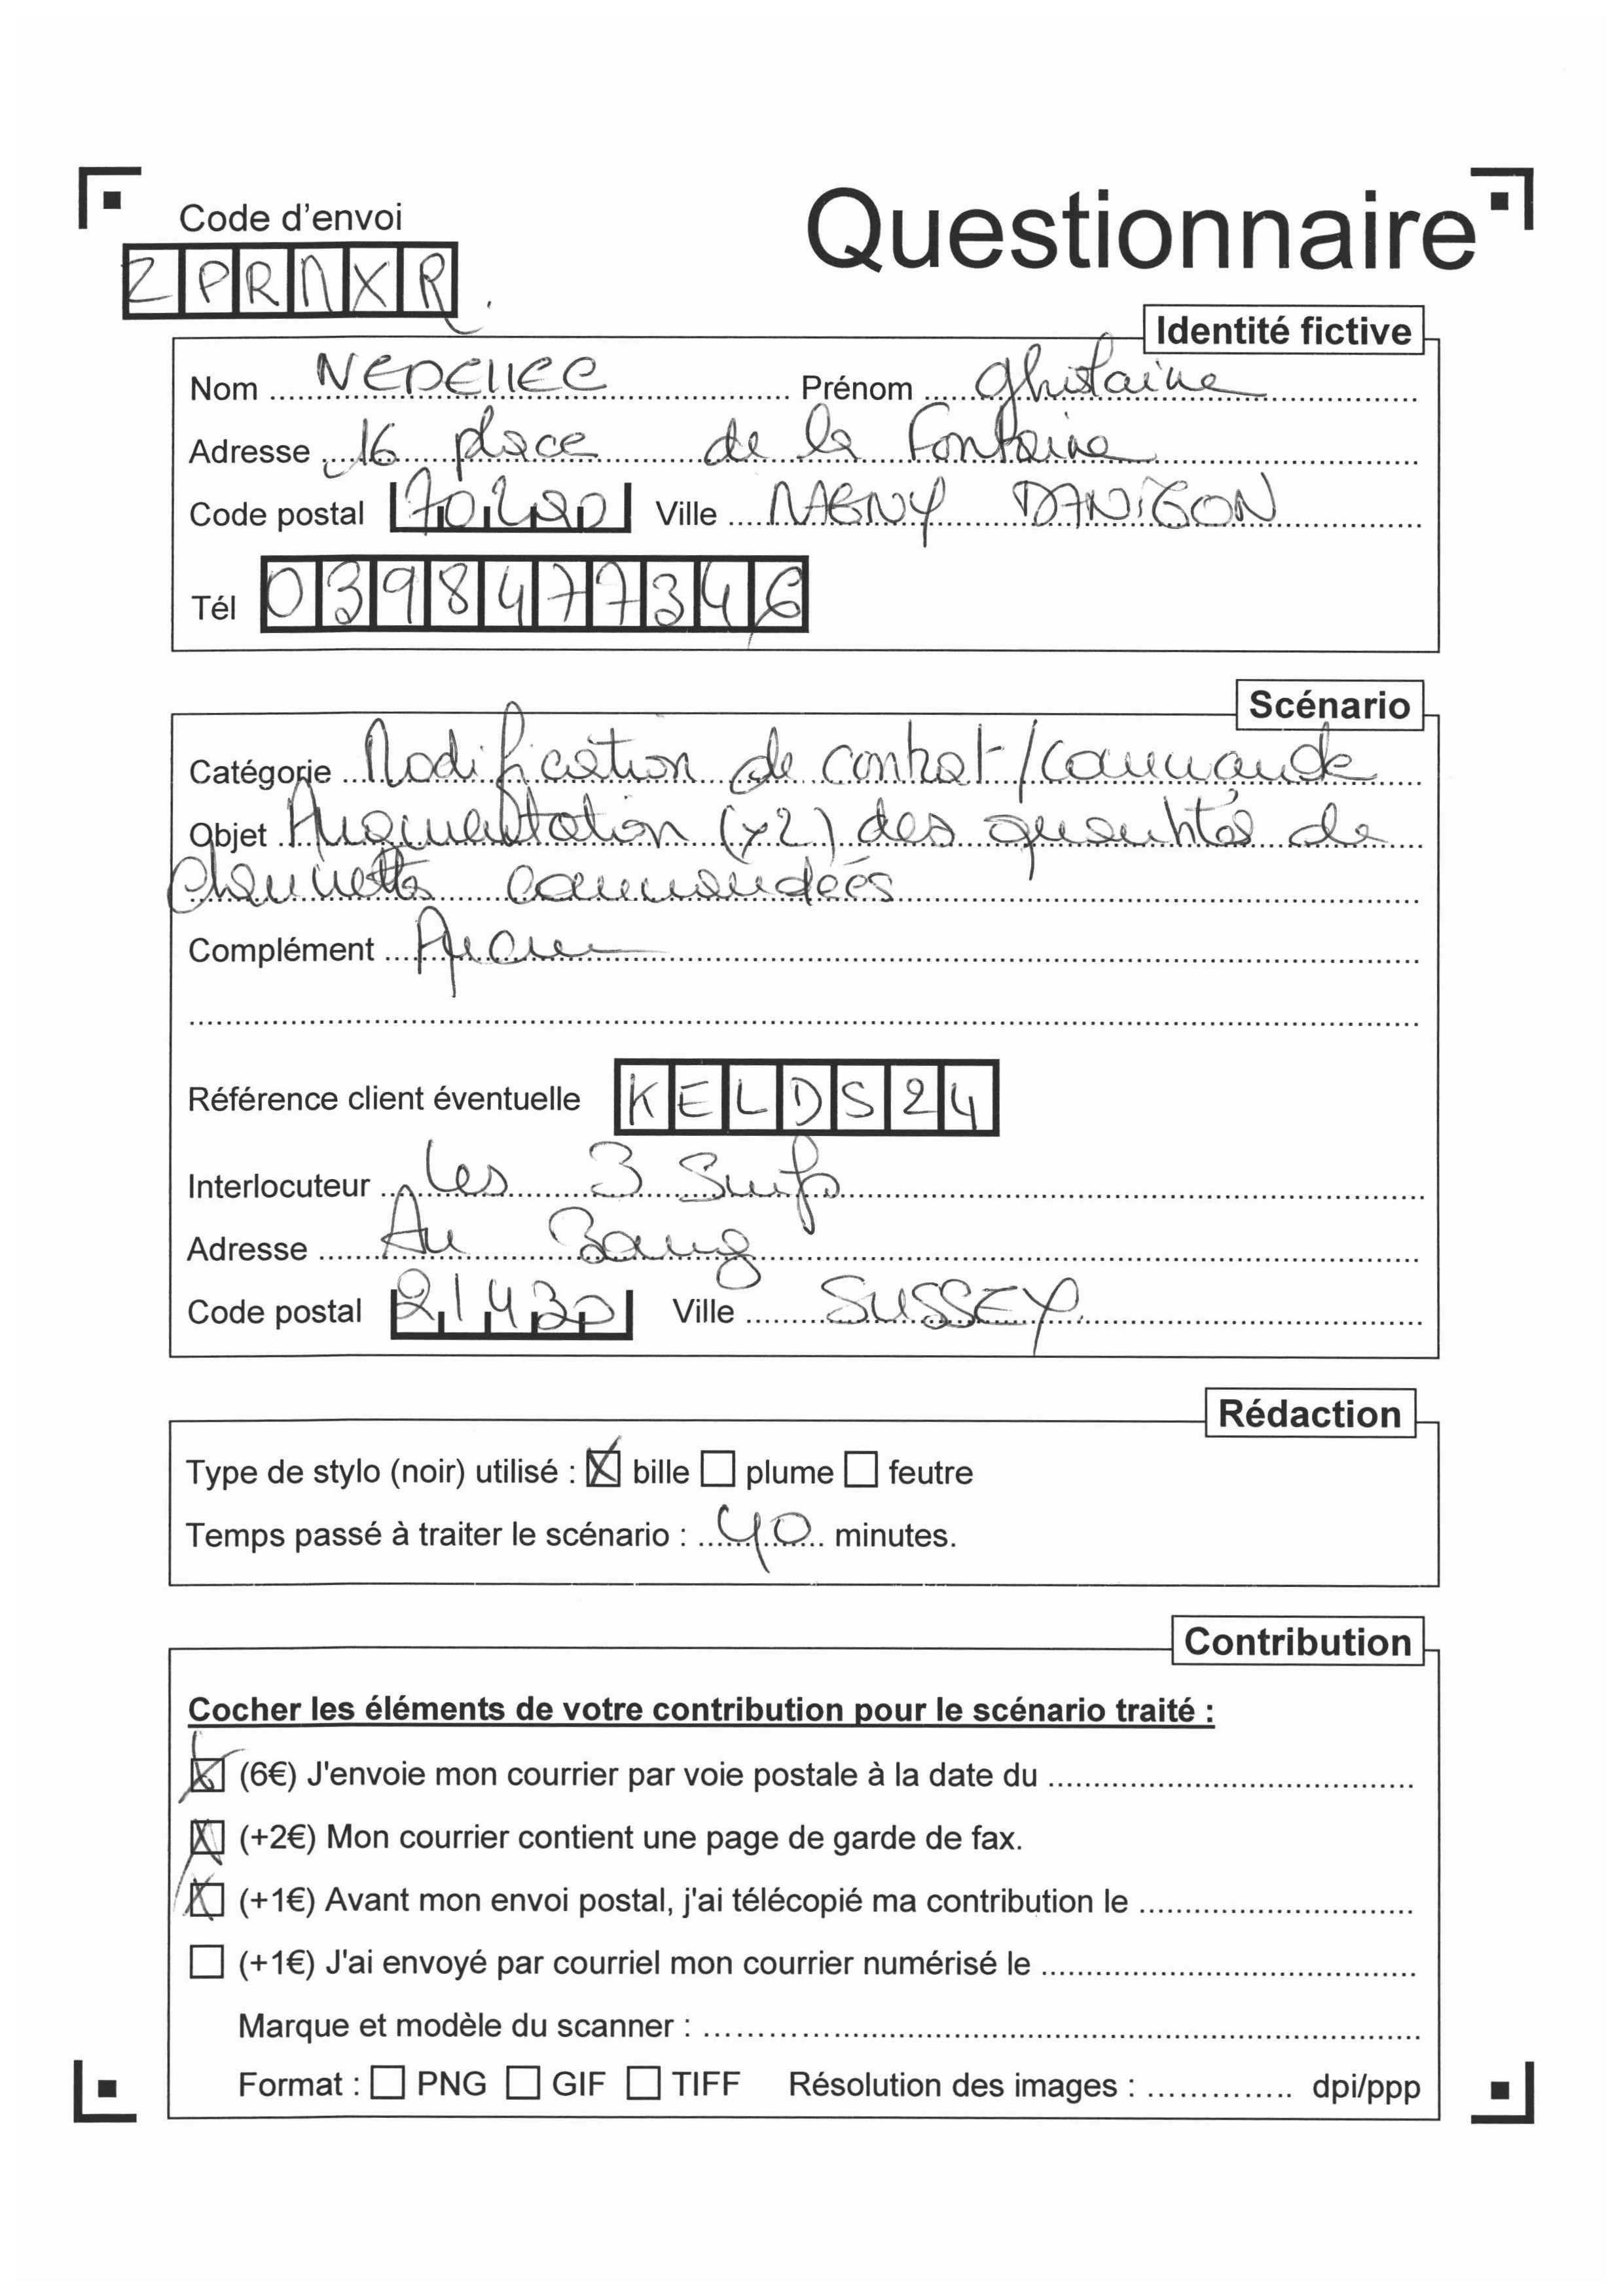 Code d'envoi
Questionnaire
ZPRMXR
Identité fictive
Nom NEDELLEC Prénom Ghislaine
Adresse 16 place de la Fontaine
Code postal 70200 Ville MAGNY DANIGON
Tél 0398477346
Scénario
Catégorie Modification de contrat/commande
Objet Augmentation (x2) des quantités de
commandées
Complément Aucun
Référence client éventuelle KELDS24
Interlocuteur Les 3 Suifs
Adresse Au Bourg
Code postal 21430 Ville SUSSEY
Rédaction
Type de stylo (noir) utilisé : bille plume feutre
Temps passé à traiter le scénario : 40 minutes.
Contribution
Cocher les éléments de votre contribution pour le scénario traité :
(6€) J'envoie mon courrier par voie postale à la date du
(+2€) Mon courrier contient une page de garde de fax.
(+1€) Avant mon envoi postal, j'ai télécopié ma contribution le
(+1€) J'ai envoyé par courriel mon courrier numérisé le
Marque et modèle du scanner :
Format : PNG GIF TIFF Résolution des images : dpi/ppp